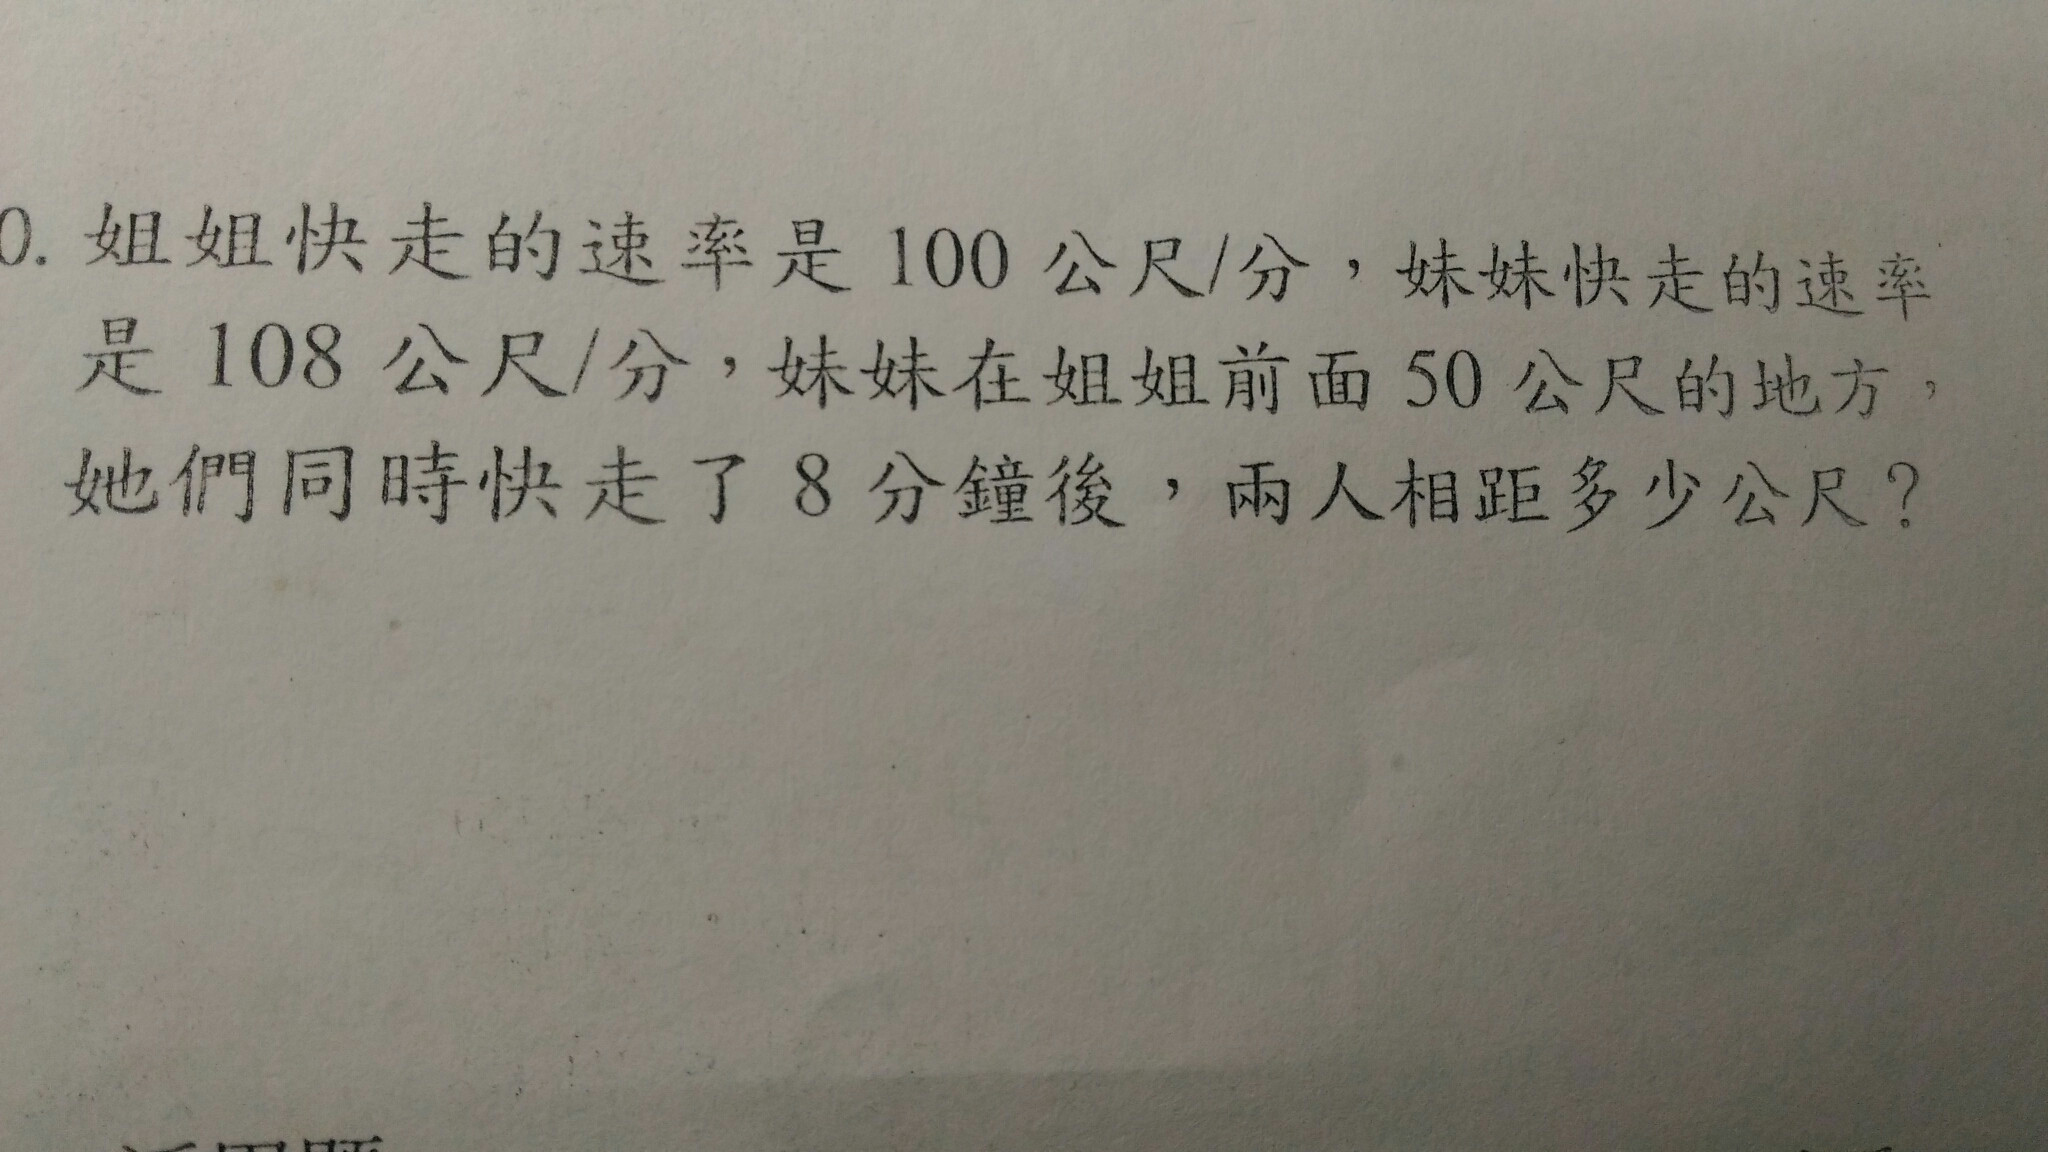 0. 姐姐快走的速率是 100 公尺/分，妹妹快走的速率
是 108 公尺/分，妹妹在姐姐前面 50 公尺的地方，
她們同時快走了 8 分鐘後，兩人相距多少公尺？